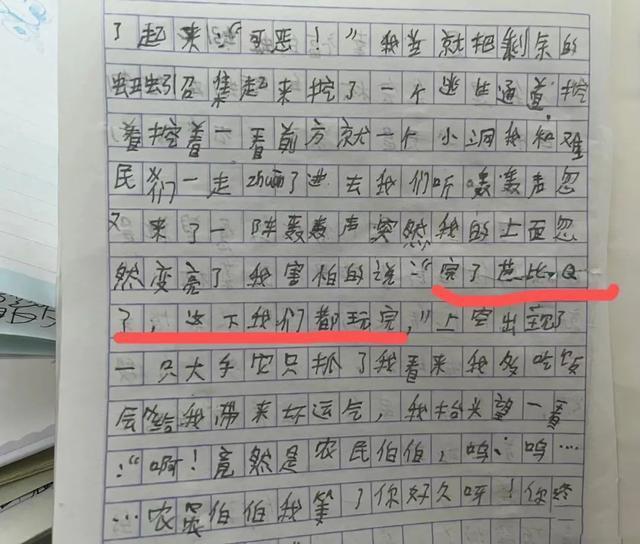 了起来:“可恶!”我蚩就把剩余的
蚯蚓召集起来挖了一个逃生通道,挖
着挖着一看前方就一个小洞我和难
民们一走zhuan了进去我们听轰轰声忽
又来了一阵轰轰声突然我的上面忽
然变亮了我害怕的说:“完了芭比Q
了,这下我们都玩完,”上空出现了
一只大手农只抓了我看来我多吃饭
会给我带来坏运气,我抬头望一看
:“啊!竟然是农民伯伯,呜呜…
…农民伯伯我等了你好久呀!你终